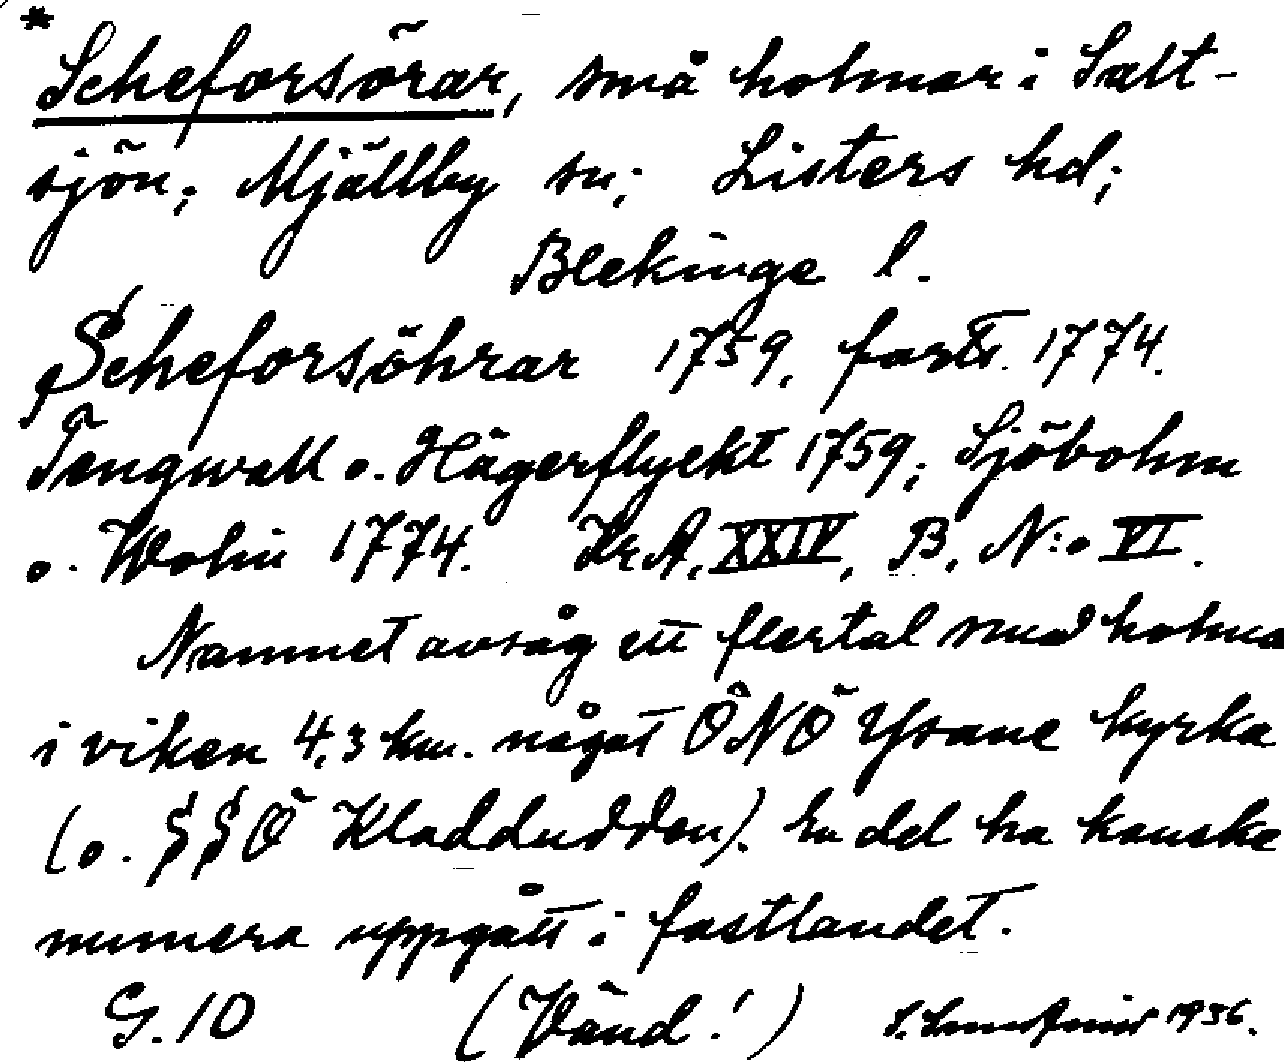 * Scheforsörar, små holmar i Salt-
sjön; Mjällby sn; Listers hd;
Blekinge l.
Scheforsöhrar 1759, 1774.
Tengwall o. Hägerflyckt 1759; Sjöbohm
o. Wohin 1774. KrA, XXIV, B, N:o VI.
Namnet avsåg ett flertal små holma
i viken 4,3 km. något ÖNÖ Ysane kyrka
(o. SSÖ Kladdudden). En del ha kanske
numera uppgått i fastlandet.
G. 10 (Vänd!) 1936.